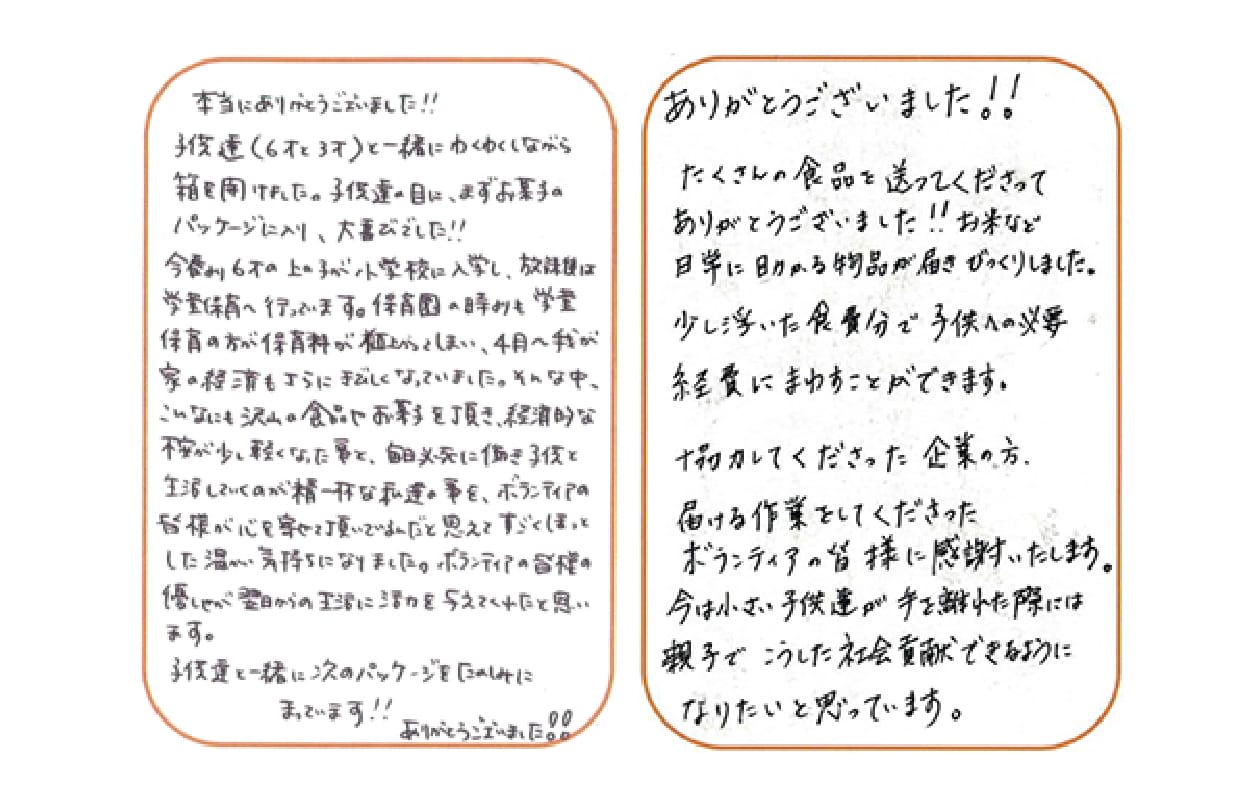 本当にありがとうございました!!
子供達(6才と3才)と一緒にわくわくしながら
箱を開けました。子供達の目に、まずお菓子の
パッケージに入り、大喜びでした!!
今春より6才の上の子が小学校に入学し、放課後は
学童保育へ行っています。保育園の時よりも学童
保育の方が保育料が値上がってしまい、4月へ我が
家の経済もさらにきびしくなっていました。そんな中、
こんなにも沢山の食品やお菓子を頂き、経済的な
不安が少し軽くなった事と、毎日必死に働き子供と
生活していくのが精一杯な私達の事を、ボランティアの
皆様が心を寄せて頂いてるんだと思えてすごくほっと
した温かい気持ちになりました。ボランティアの皆様の
優しさが翌日からの生活に活力を与えてくれたと思い
ます。
子供達と一緒に次のパッケージをたのしみに
まっています!!
ありがとうございました!!
ありがとうございました!!
たくさんの食品を送ってくださって
ありがとうございました!!お米など
日常に助かる物品が届きびっくりしました。
少し浮いた食費分で子供への必要
経費にまわすことができます。
協力してくださった企業の方、
届ける作業をしてくださった
ボランティアの皆様に感謝いたします。
今は小さい子供達が手を離れた際には
親子でこうした社会貢献できるように
なりたいと思っています。